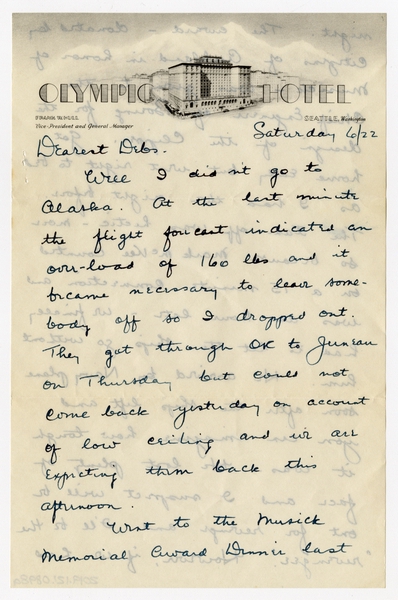 OLYMPIC HOTEL
FRANK W. HULL
Vice-President and General Manager
SEATTLE, Washington
Saturday 6/22
Dearest Debs.
Well I didn't go to
Alaska. At the last minute
the flight forecast indicated an
over-load of 160 lbs and it
became necessary to leave some-
body off so I dropped out.
They got through OK to Juneau
on Thursday but could not
come back yesterday on account
of low ceiling and we are
expecting them back this
afternoon.
Went to the Musick
Memorial Award Dinner last